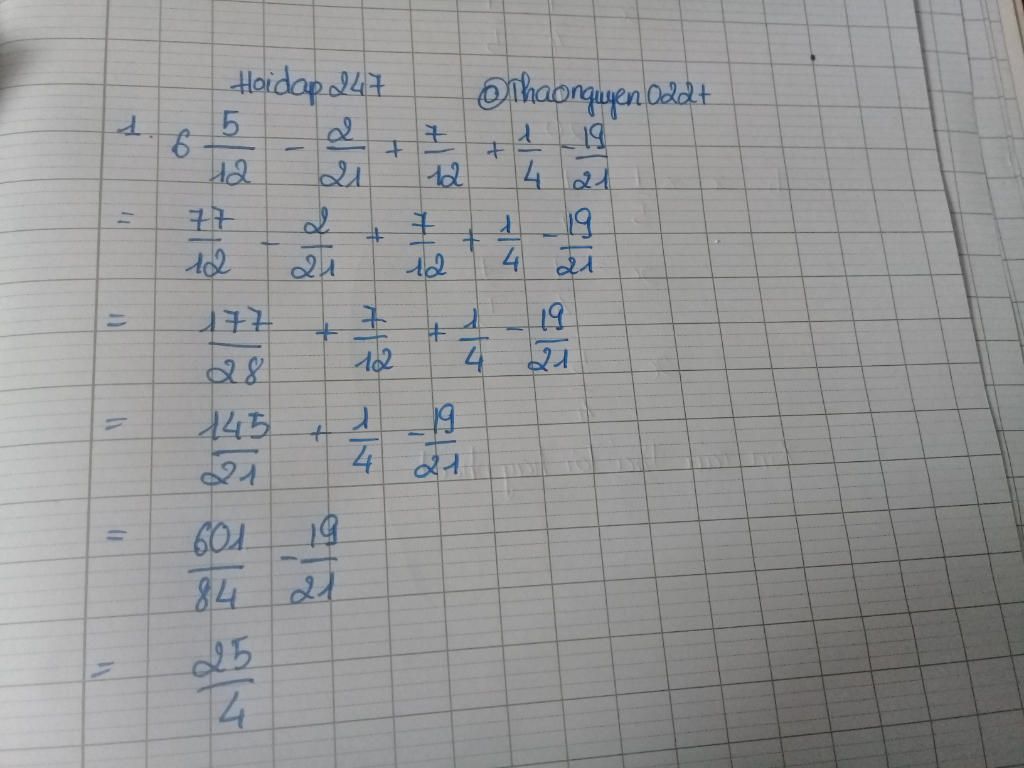 Hoidap 247 @Thaonguyen022+
1. 6 5/12 - 2/21 + 7/12 + 1/4 - 19/21
= 77/12 - 2/21 + 7/12 + 1/4 - 19/21
= 177/28 + 7/12 + 1/4 - 19/21
= 145/21 + 1/4 - 19/21
= 601/84 - 19/21
= 25/4